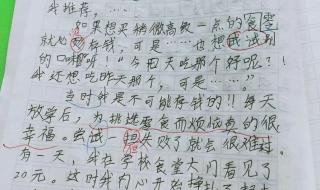 我推荐，……
如果想买稍微高级一点的食零
就必须存钱，可是……也想试试别
的口味呀！“今天吃那个好呢？！
我还想吃昨天那个，可是……”。
当时我是不可能存钱的!!每天
放学后，为挑选零食而烦恼真的很
幸福。尝试 但失败了就会很难过。
有一天，我在学校食堂大门看见了
20元。这时我内心开始挣扎